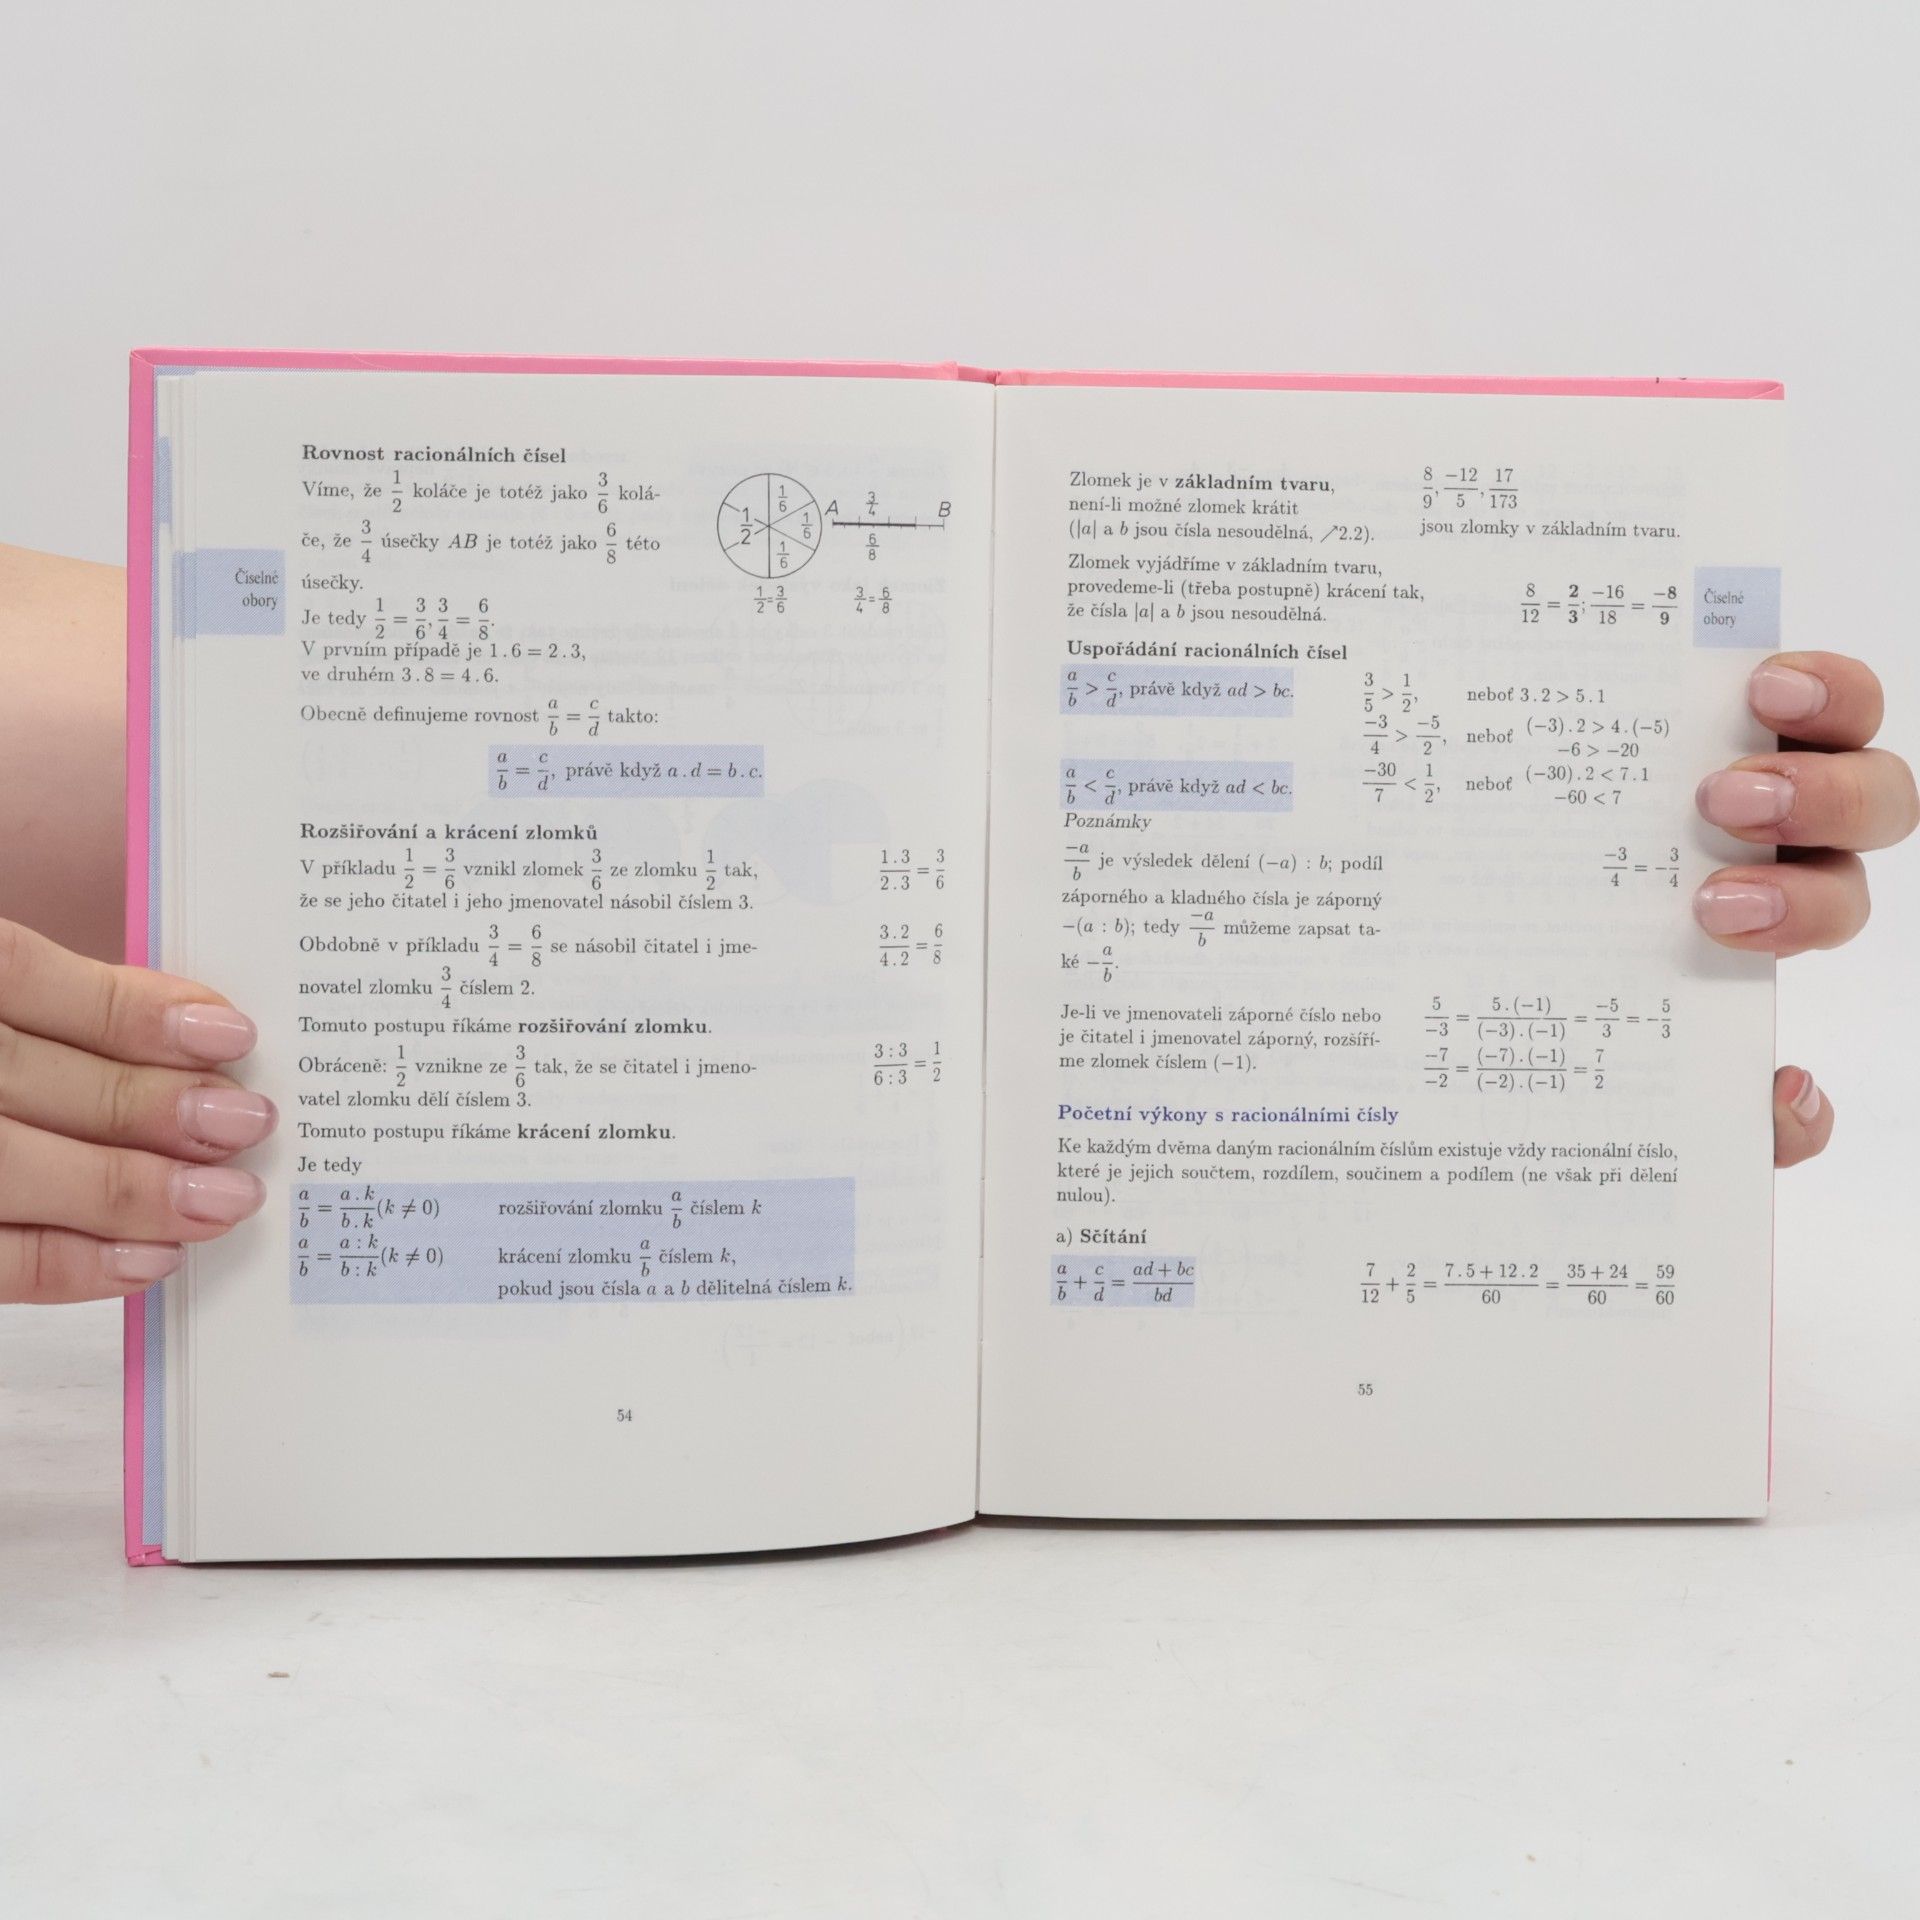 Číselné
obory
Rovnost racionálních čísel
Víme, že 1/2 koláče je totéž jako 3/6 kolá-
če, že 3/4 úsečky AB je totéž jako 6/8 této
úsečky.
Je tedy 1/2 = 3/6, 3/4 = 6/8.
V prvním případě je 1 . 6 = 2 . 3,
ve druhém 3 . 8 = 4 . 6.
1/2 1/6 1/6 1/6
A 3/4 B
6/8
1/2 = 3/6 3/4 = 6/8
Obecně definujeme rovnost a/b = c/d takto:
a/b = c/d, právě když a . d = b . c.
Rozšiřování a krácení zlomků
V příkladu 1/2 = 3/6 vznikl zlomek 3/6 ze zlomku 1/2 tak, 1 . 3/2 . 3 = 3/6
že se jeho čitatel i jeho jmenovatel násobil číslem 3.
Obdobně v příkladu 3/4 = 6/8 se násobil čitatel i jme- 3 . 2/4 . 2 = 6/8
novatel zlomku 3/4 číslem 2.
Tomuto postupu říkáme rozšiřování zlomku.
Obráceně: 1/2 vznikne ze 3/6 tak, že se čitatel i jmeno- 3 : 3/6 : 3 = 1/2
vatel zlomku dělí číslem 3.
Tomuto postupu říkáme krácení zlomku.
Je tedy
a/b = a . k/b . k (k ≠ 0) rozšiřování zlomku a/b číslem k
a/b = a : k/b : k (k ≠ 0) krácení zlomku a/b číslem k,
pokud jsou čísla a a b dělitelná číslem k.
54
Zlomek je v základním tvaru, 8/9, −12/5, 17/173
není-li možné zlomek krátit
(|a| a b jsou čísla nesoudělná, ↗2.2). jsou zlomky v základním tvaru.
Zlomek vyjádříme v základním tvaru,
provedeme-li (třeba postupně) krácení tak, 8/12 = 2/3; −16/18 = −8/9
že čísla |a| a b jsou nesoudělná.
Číselné
obory
Uspořádání racionálních čísel
a/b > c/d, právě když ad > bc. 3/5 > 1/2, neboť 3 . 2 > 5 . 1
−3/4 > −5/2, neboť (−3) . 2 > 4 . (−5)
−6 > −20
a/b < c/d, právě když ad < bc. −30/7 < 1/2, neboť (−30) . 2 < 7 . 1
−60 < 7
Poznámky
−a/b je výsledek dělení (−a) : b; podíl −3/4 = −3/4
záporného a kladného čísla je záporný
−(a : b); tedy −a/b můžeme zapsat ta-
ké −a/b.
Je-li ve jmenovateli záporné číslo nebo 5/−3 = 5 . (−1)/(−3) . (−1) = −5/3 = −5/3
je čitatel i jmenovatel záporný, rozšíří-
me zlomek číslem (−1). −7/−2 = (−7) . (−1)/(−2) . (−1) = 7/2
Početní výkony s racionálními čísly
Ke každým dvěma daným racionálním číslům existuje vždy racionální číslo,
které je jejich součtem, rozdílem, součinem a podílem (ne však při dělení
nulou).
a) Sčítání
a/b + c/d = ad + bc/bd 7/12 + 2/5 = 7 . 5 + 12 . 2/60 = 35 + 24/60 = 59/60
55